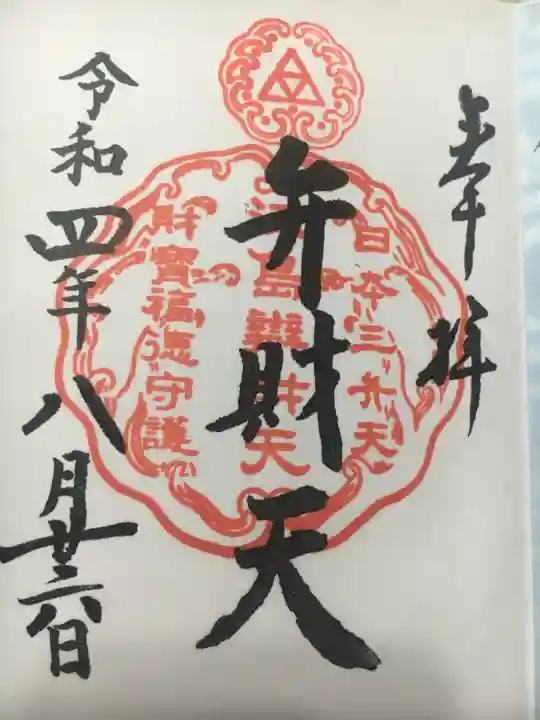 奉拝
日本三弁天
江島辨財天
財寶福徳守護
弁財天
令和四年八月廿六日